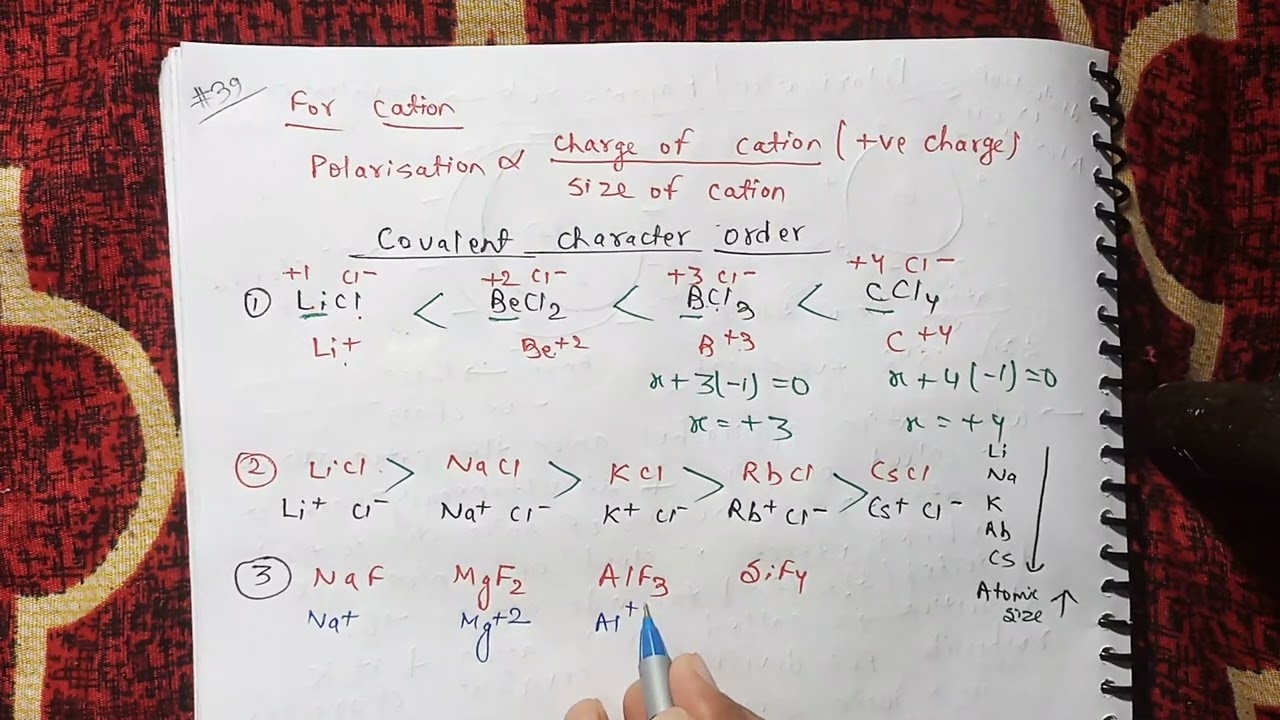 #39
For Cation
Polarisation ∝ Charge of cation (+ve charge)
Size of cation
Covalent character order
+1 Cl⁻ +2 Cl⁻ +3 Cl⁻ +4 Cl⁻
① LiCl < BeCl₂ < BCl₃ < CCl₄
Li⁺ Be⁺² B⁺³ C⁺⁴
x+3(-1)=0 x+4(-1)=0
x=+3 x=+4
② LiCl > NaCl > KCl > RbCl > CsCl
Li⁺ Cl⁻ Na⁺ Cl⁻ K⁺ Cl⁻ Rb⁺ Cl⁻ Cs⁺ Cl⁻
Li
Na
K
Rb
Cs
Atomic
Size ↑
③ NaF MgF₂ AlF₃ SiF₄
Na⁺ Mg⁺² Al⁺